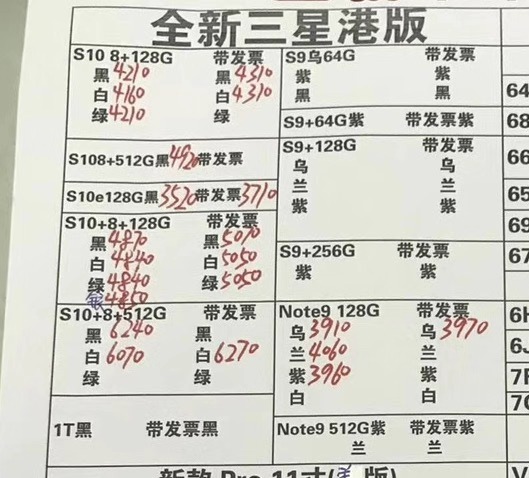 全新三星港版
S10 8+128G 带发票
黑4210 黑4310
白4160 白4310
绿4210 绿
S108+512G黑4920带发票
S10e128G黑3520带发票3710
S10+8+128G 带发票
黑4870 黑5070
白4840 白5050
绿4840 绿5050
银4850
S10+8+512G 带发票
黑6240 黑
白6070 白6270
绿 绿
1T黑 带发票黑
S9乌64G 带发票
紫 紫
黑 黑
S9+64G紫 带发票紫
S9+128G 带发票
乌 乌
兰 兰
紫 紫
S9+256G 带发票
紫 紫
Note9 128G 带发票
乌3910 乌3970
兰4060 兰
紫3960 紫
白 白
Note9 512G紫 带发票紫
兰 兰
64
68
66
65
69
67
6H
6J
7F
70
新款 Pro 11寸(美版)